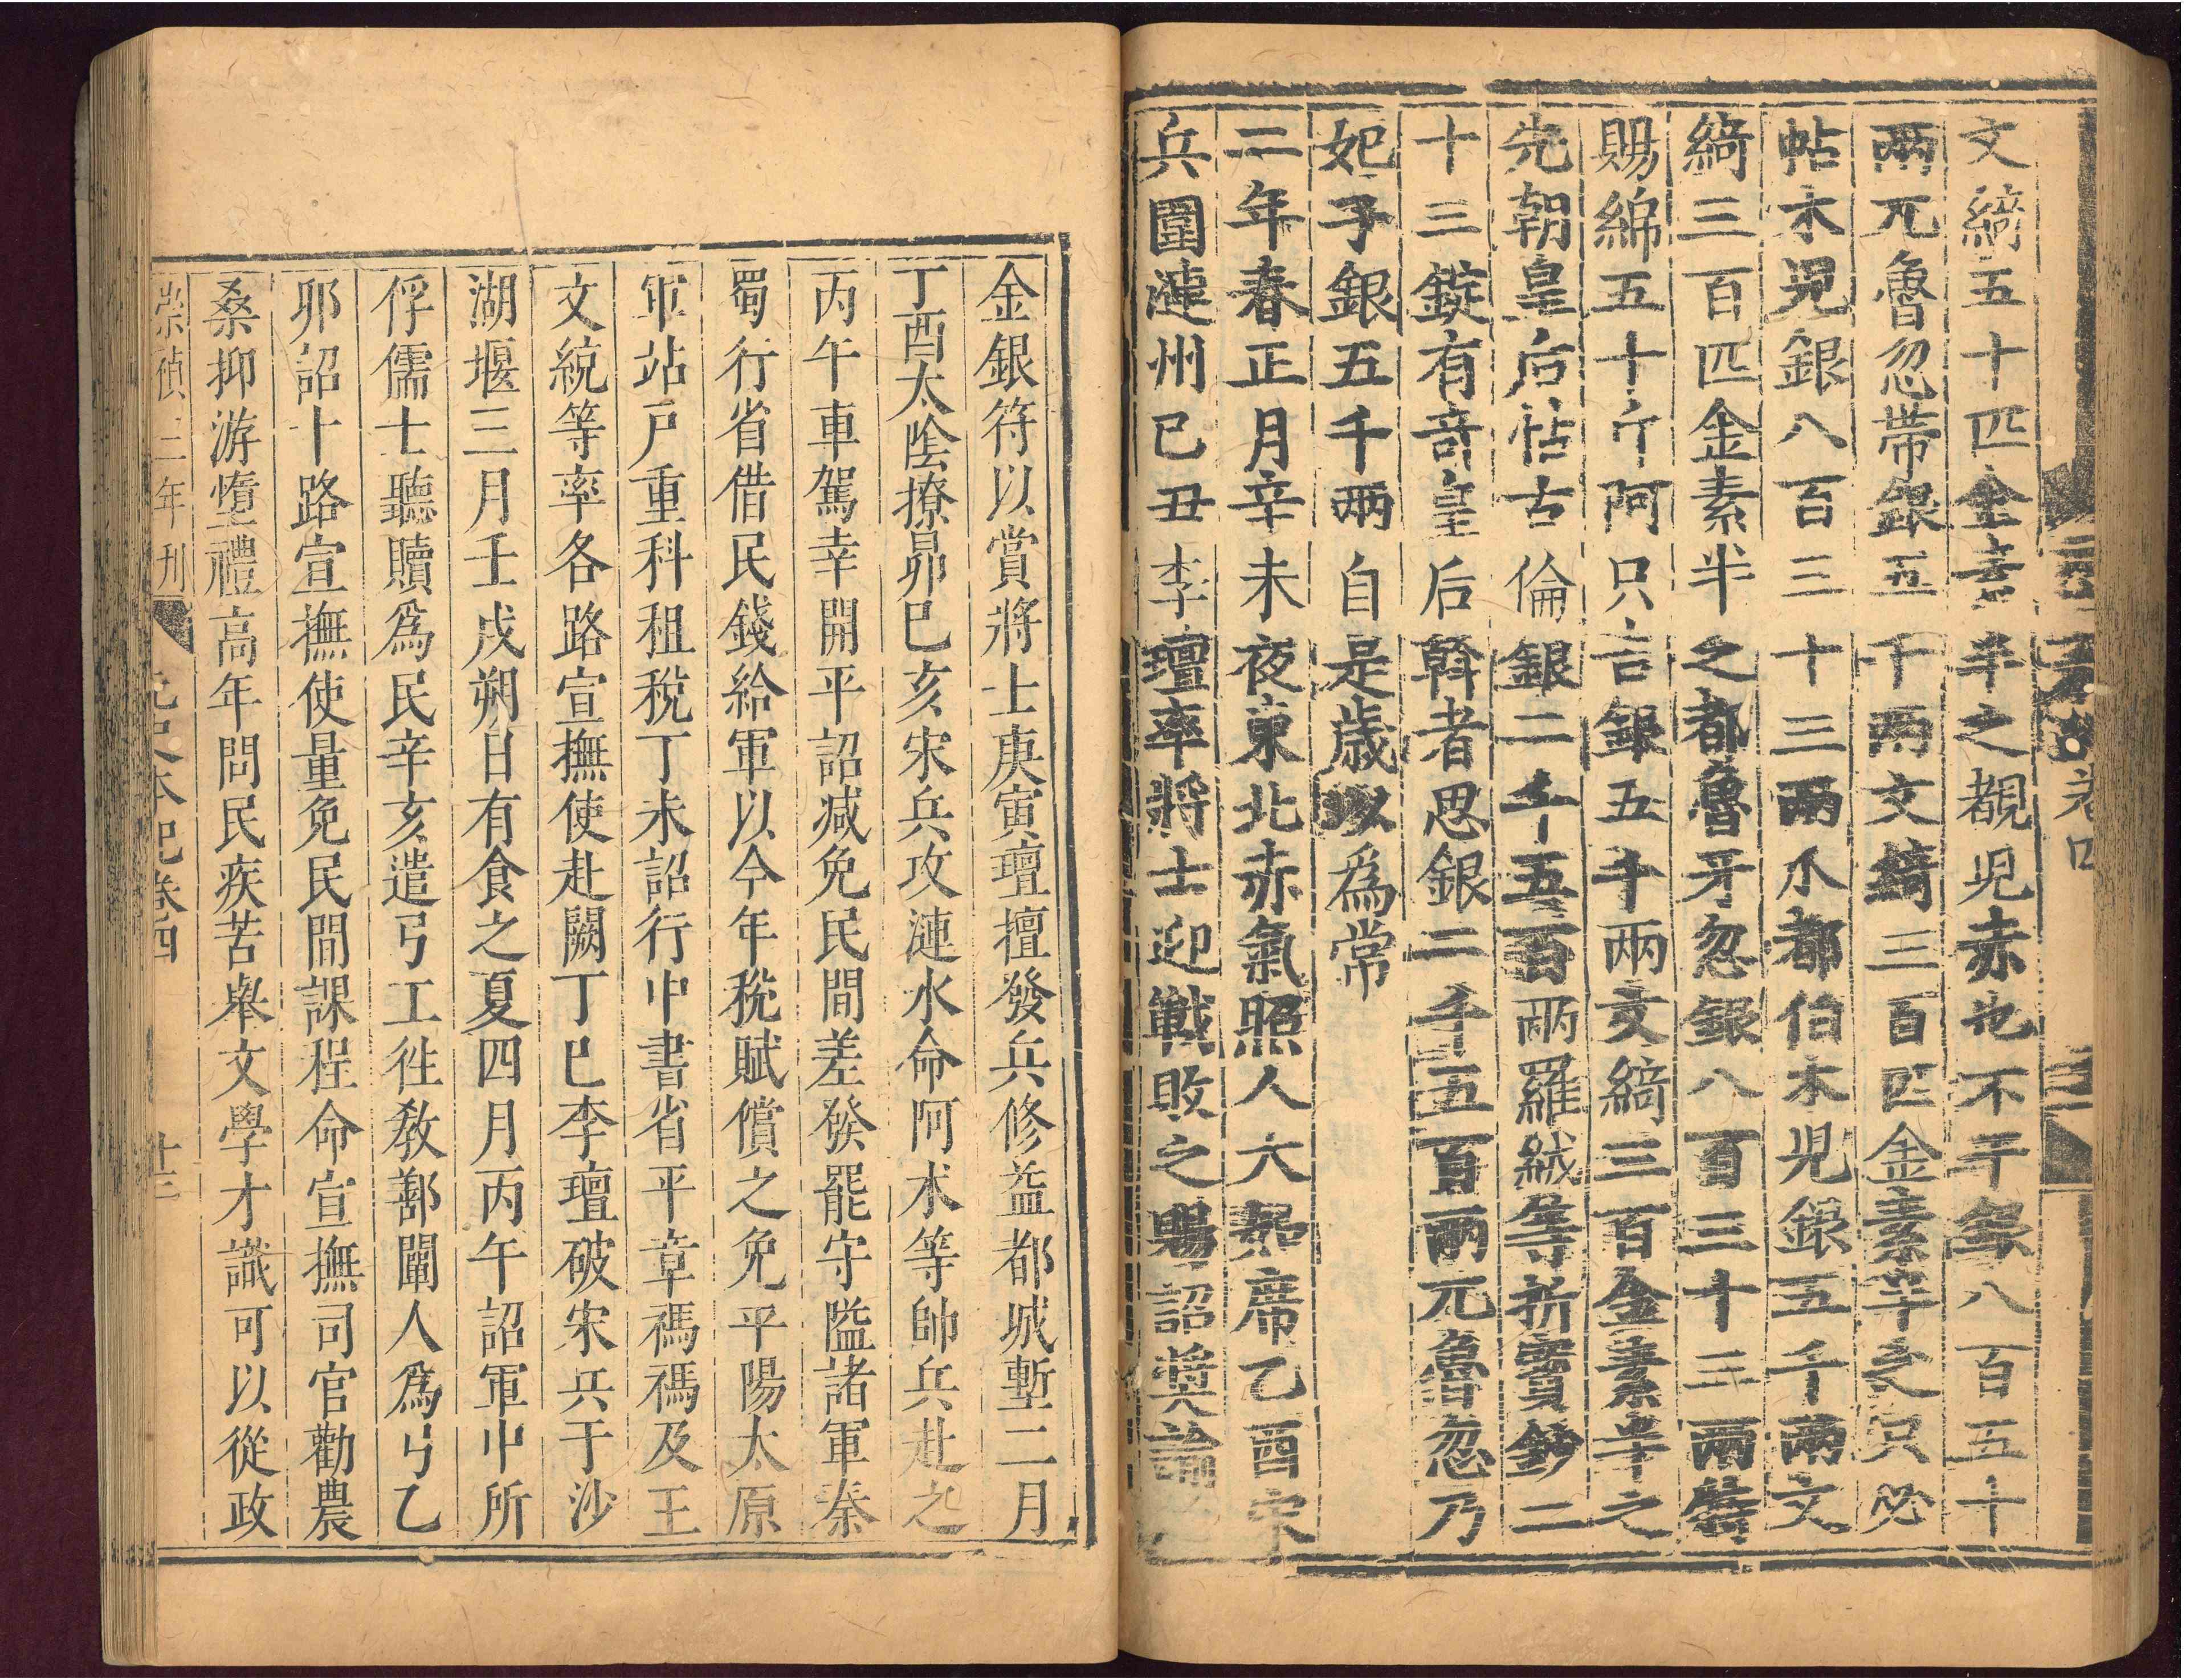 卷四
文綺五十匹金素半之覩児赤也不干銀八百五十
兩兀魯忽帶銀五千兩文綺三百匹金素半之只必
帖木児銀八百三十三兩爪都伯木児銀五千兩文
綺三百匹金素半之都魯牙忽銀八百三十三兩特
賜綿五十斤阿只吉銀五千兩文綺三百金素半之
先朝皇后怗古倫銀二千五百兩羅絨等折寶鈔二
十三錠有竒皇后斡者思銀二千五百兩兀魯忽乃
妃子銀五千兩自是歳以爲常
二年春正月辛未夜東北赤氣照人大如席乙酉宋
兵圍漣州己丑李璮率將士迎戰敗之賜詔奬諭
金銀符以賞將士庚寅璮擅發兵修益都城塹二月
丁酉太隂撩昴巳亥宋兵攻漣水命阿术等帥兵赴之
丙午車駕幸開平詔减免民間差發罷守隘諸軍秦
蜀行省借民錢給軍以今年稅賦償之免平陽太原
軍站戸重科租稅丁未詔行中書省平章禡禡及王
文統等率各路宣撫使赴闕丁巳李璮破宋兵于沙
湖堰三月壬戌朔日有食之夏四月丙午詔軍中所
俘儒士聽贖爲民辛亥遣弓工徃教鄯闡人爲弓乙
夘詔十路宣撫使量免民間課程命宣撫司官勸農
桑抑游惰禮高年問民疾苦舉文學才識可以從政
崇禎三年刊 元史本紀卷四 十三